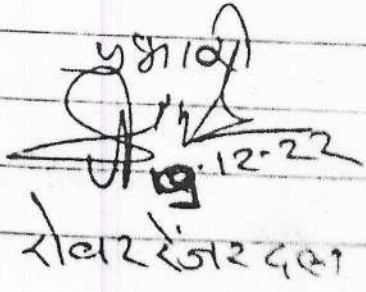 प्रभारी
9.12.22
रोवर रेंजर दल